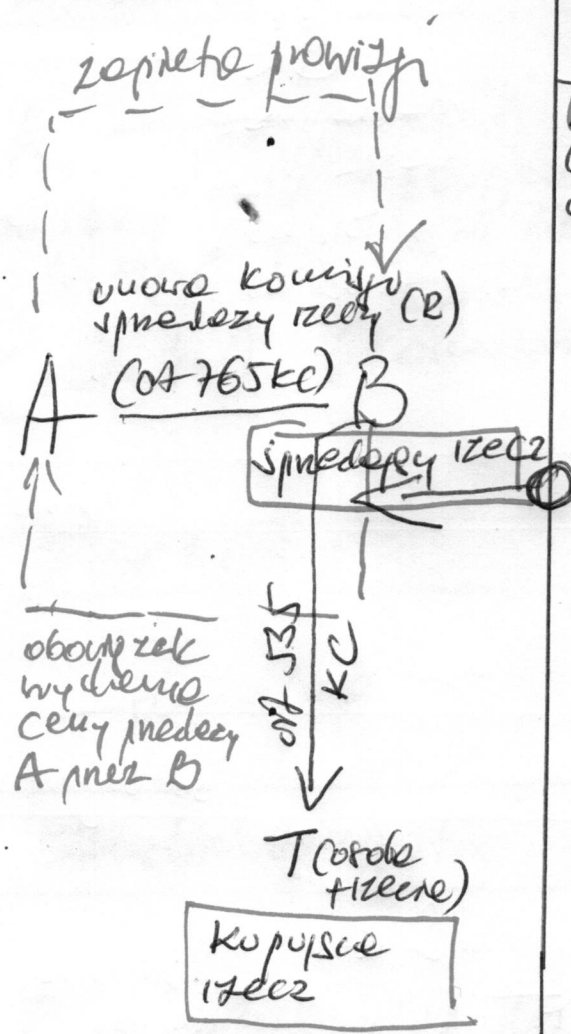 zapłata prowizji
umowa komisu
sprzedaży rzeczy (R)
(art 765 KC)
A
B
sprzedający rzecz
art 535
KC
obowiązek
wydania
ceny sprzedaży
A przez B
T (osoba
trzecia)
kupująca
rzecz